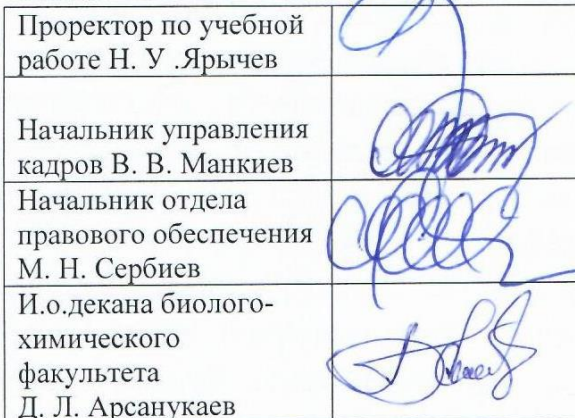 Проректор по учебной
работе Н. У .Ярычев
Начальник управления
кадров В. В. Манкиев
Начальник отдела
правового обеспечения
М. Н. Сербиев
И.о.декана биолого-
химического
факультета
Д. Л. Арсанукаев